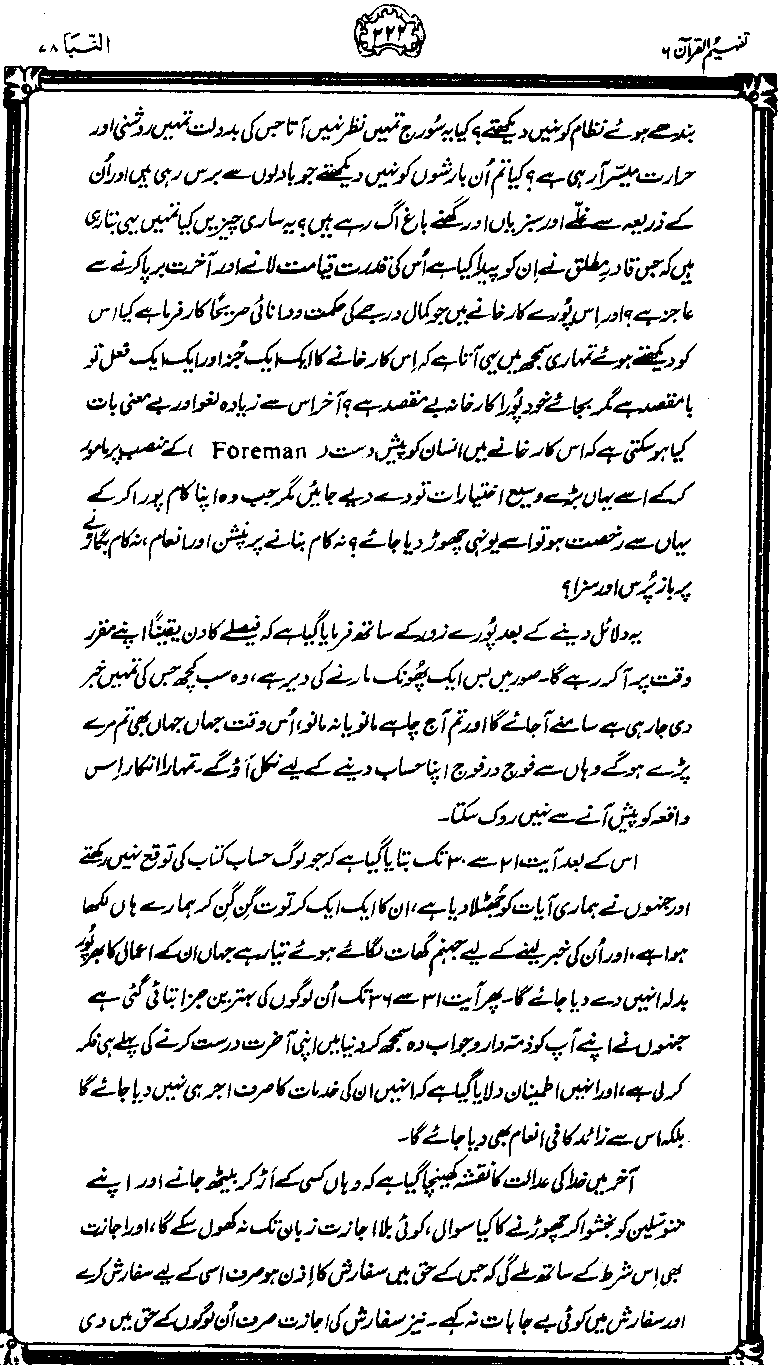 تفہیم القرآن ۶
۲۲۲
النّبَا ۷۸
بندھے ہوئے نظام کو نہیں دیکھتے؟ کیا یہ سُورج تمہیں نظر نہیں آتا جس کی بدولت تمہیں روشنی اور
حرارت میسّر آ رہی ہے؟ کیا تم اُن بارشوں کو نہیں دیکھتے جو بادلوں سے برس رہی ہیں اور اُن
کے ذریعہ سے غلّے اور سبزیاں اور گھنے باغ اگ رہے ہیں؟ یہ ساری چیزیں کیا تمہیں یہی بتا رہی
ہیں کہ جس قادرِ مطلق نے اِن کو پیدا کیا ہے اُس کی قدرت قیامت لانے اور آخرت برپا کرنے سے
عاجز ہے؟ اور اِس پُورے کارخانے میں جو کمال درجے کی حکمت و دانائی صریحًا کار فرما ہے کیا اس
کو دیکھتے ہوئے تمہاری سمجھ میں یہی آتا ہے کہ اِس کارخانے کا ایک ایک جُز اور ایک ایک فعل تو
بامقصد ہے مگر بجائے خود پُورا کارخانہ بے مقصد ہے؟ آخر اس سے زیادہ لغو اور بے معنی بات
کیا ہو سکتی ہے کہ اس کارخانے میں انسان کو پیش دست (Foreman) کے منصب پر مامور
کر کے اسے یہاں بڑے وسیع اختیارات تو دے دیے جائیں مگر جب وہ اپنا کام پورا کر کے
یہاں سے رخصت ہو تو اسے یونہی چھوڑ دیا جائے؟ نہ کام بنانے پر پنشن اور انعام، نہ کام بگاڑنے
پر باز پُرس اور سزا؟
یہ دلائل دینے کے بعد پُورے زور کے ساتھ فرمایا گیا ہے کہ فیصلے کا دن یقینًا اپنے مقرر
وقت پر آ کر رہے گا۔ صور میں بس ایک پھُونک مارنے کی دیر ہے، وہ سب کچھ جس کی تمہیں خبر
دی جا رہی ہے سامنے آ جائے گا اور تم آج چاہے مانو یا نہ مانو، اُس وقت جہاں جہاں بھی تم مرے
پڑے ہو گے وہاں سے فوج در فوج اپنا حساب دینے کے لیے نکل آؤ گے۔ تمہارا انکار اِس
واقعہ کو پیش آنے سے نہیں روک سکتا۔
اس کے بعد آیت ۲۱ سے ۳۰ تک بتایا گیا ہے کہ جو لوگ حساب کتاب کی توقع نہیں رکھتے
اور جنہوں نے ہماری آیات کو جھٹلا دیا ہے، ان کا ایک ایک کرتوت گِن گِن کر ہمارے ہاں لکھا
ہوا ہے، اور اُن کی خبر لینے کے لیے جہنم گھات لگائے ہوئے تیار ہے جہاں ان کے اعمال کا بھرپُور
بدلہ انہیں دے دیا جائے گا۔ پھر آیت ۳۱ سے ۳۶ تک اُن لوگوں کی بہترین جزا بتائی گئی ہے
جنہوں نے اپنے آپ کو ذمّہ دار و جواب دہ سمجھ کر دنیا میں اپنی آخرت درست کرنے کی پہلے ہی فکر
کر لی ہے، اور انہیں اطمینان دلایا گیا ہے کہ انہیں ان کی خدمات کا صرف اجر ہی نہیں دیا جائے گا
بلکہ اس سے زائد کافی انعام بھی دیا جائے گا۔
آخر میں خدا کی عدالت کا نقشہ کھینچا گیا ہے کہ وہاں کسی کے اَڑ کر بیٹھ جانے اور اپنے
متوسلین کو بخشوا کر چھوڑنے کا کیا سوال، کوئی بلا اجازت زبان تک نہ کھول سکے گا، اور اجازت
بھی اِس شرط کے ساتھ ملے گی کہ جس کے حق میں سفارش کا اِذن ہو صرف اسی کے لیے سفارش کرے
اور سفارش میں کوئی بے جا بات نہ کہے۔ نیز سفارش کی اجازت صرف اُن لوگوں کے حق میں دی